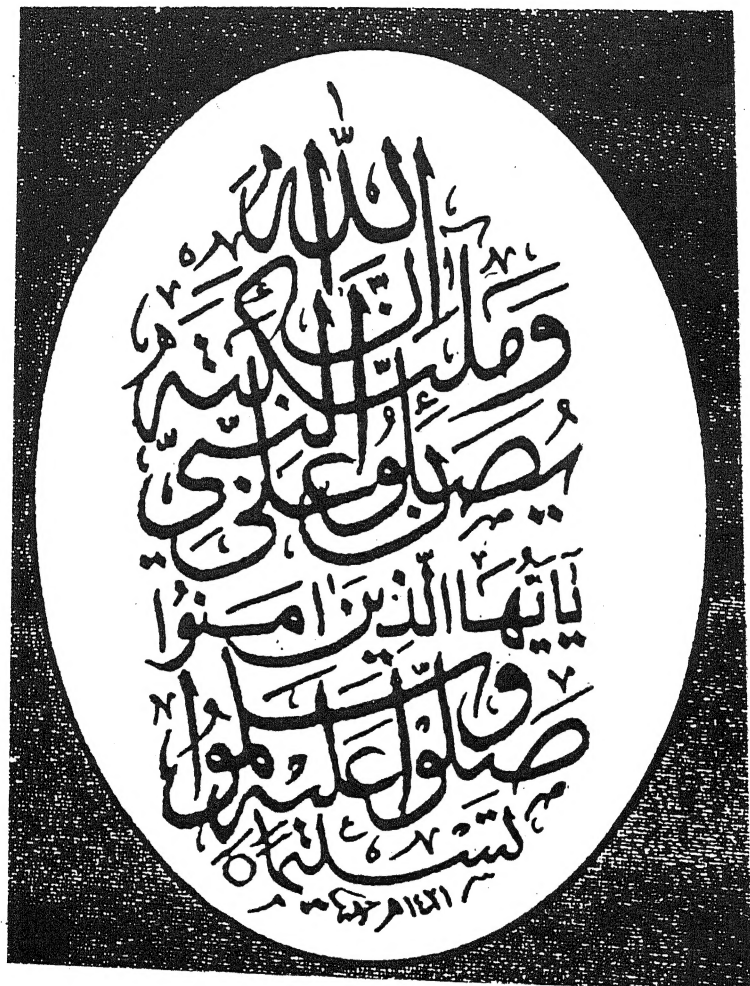 إِنَّ اللّٰهَ
وَمَلٰئِكَتَهُ
يُصَلُّونَ عَلَى النَّبِيِّ
يٰٓاَيُّهَا الَّذِينَ اٰمَنُوا
صَلُّوا عَلَيْهِ وَسَلِّمُوا
تَسْلِيمًا